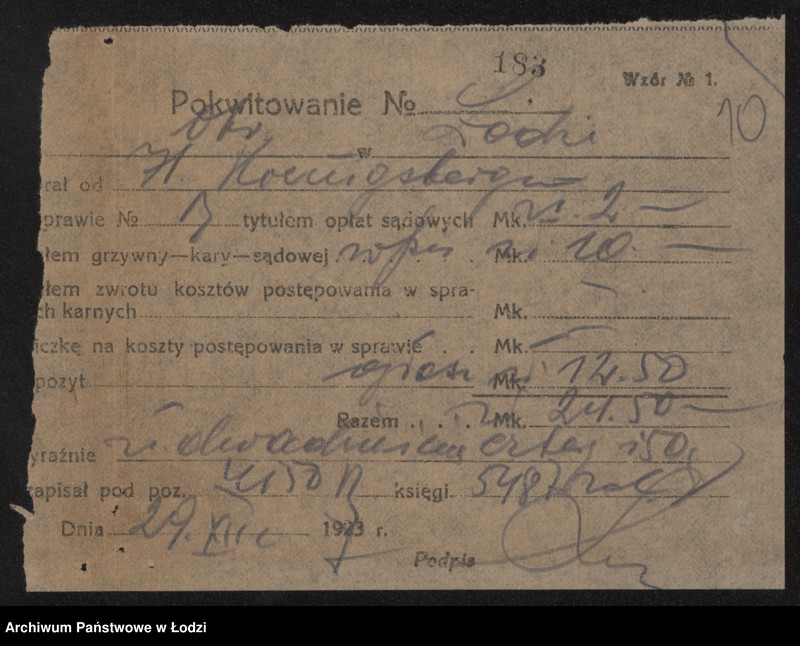 183
Wzór № 1.
10
Pokwitowanie №
w Łodzi
rał od H. Koenigsberga
prawie № tytułem opłat sądowych Mk. zł. 2 —
łem grzywny—kary—sądowej wpis Mk. zł. 10. —
łem zwrotu kosztów postępowania w spra-
ch karnych Mk. —
iczkę na koszty postępowania w sprawie Mk. —
pozyt Mk. zł. 12.50
Razem Mk. 24.50 —
yraźnie zł. dwadzieścia cztery i 50
zapisał pod poz. księgi
Dnia 29. XII 1923 r. 7
Podpis
Archiwum Państwowe w Łodzi